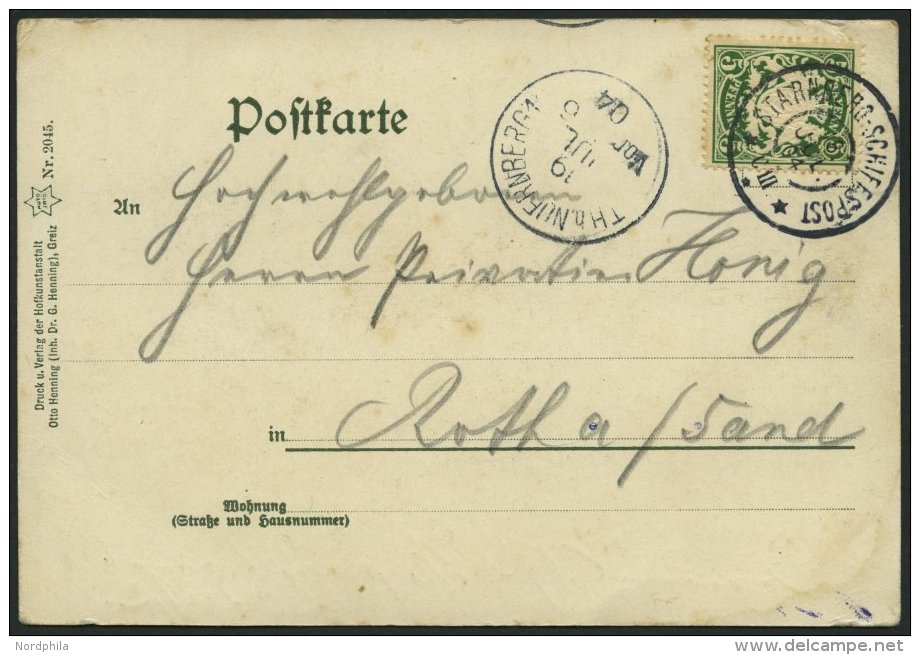 Postkarte
An
Hochwohlgeboren
Herrn Privatier Honig
in
Roth a/Sand
Wohnung
(Straße und Hausnummer)
Nr. 2045.
Druck u. Verlag der Hofkunstanstalt
Otto Henning (Inh. Dr. G. Henning), Greiz
TH b. NUERNBERG
19 JUL
Vor
04
5
STARNBERG-SCHIFFSPOST
III
Nordphila
www.delcampe.net